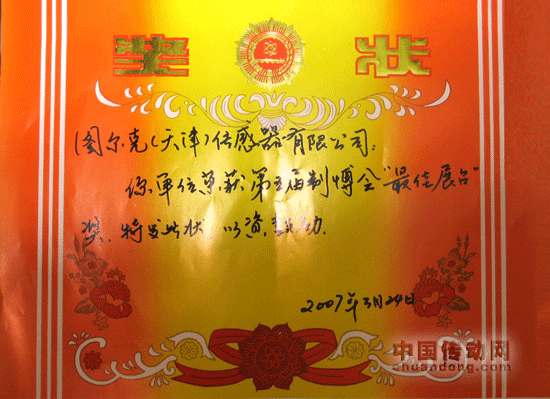 奖 状
图尔克(天津)传感器有限公司:
你单位荣获第五届制博会"最佳展台"
奖.特发此状,以资鼓励.
2007年3月24日
中国传动网
chuandong.com